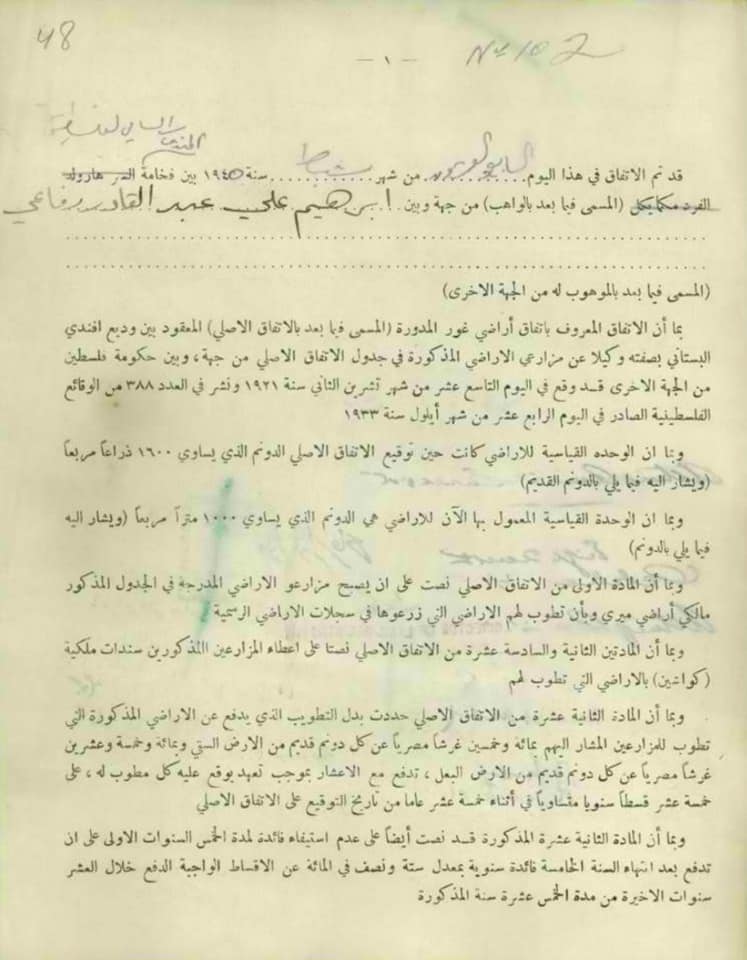 48
No 102
- ١ -
المندوب السامي لفلسطين
قد تم الاتفاق في هذا اليوم السابع والعشرون من شهر شباط سنة ١٩٤٥ بين فخامة السر هارولد
الفرد مكمايكل (المسمى فيما بعد بالواهب) من جهة وبين ابرهيم علي عبد القادر رفاعي
(المسمى فيما بعد بالموهوب له من الجهة الاخرى)
بما أن الاتفاق المعروف باتفاق أراضي غور المدورة (المسمى فيما بعد بالاتفاق الاصلي) المعقود بين وديع افندي
البستاني بصفته وكيلا عن مزارعي الاراضي المذكورة في جدول الاتفاق الاصلي من جهة، وبين حكومة فلسطين
من الجهة الاخرى قد وقع في اليوم التاسع عشر من شهر تشرين الثاني سنة ١٩٢١ ونشر في العدد ٣٨٨ من الوقائع
الفلسطينية الصادر في اليوم الرابع عشر من شهر أيلول سنة ١٩٣٣
وبما ان الوحده القياسية للاراضي كانت حين توقيع الاتفاق الاصلي الدونم الذي يساوي ١٦٠٠ ذراعاً مربعاً
(ويشار اليه فيما يلي بالدونم القديم)
وبما ان الوحدة القياسية المعمول بها الآن للاراضي هي الدونم الذي يساوي ١٠٠٠ متراً مربعاً (ويشار اليه
فيما يلي بالدونم)
وبما أن المادة الاولى من الاتفاق الاصلي نصت على ان يصبح مزارعو الاراضي المدرجة في الجدول المذكور
مالكي أراضي ميري وبأن تطوب لهم الاراضي التي زرعوها في سجلات الاراضي الرسمية
وبما أن المادتين الثانية والسادسة عشرة من الاتفاق الاصلي نصتا على اعطاء المزارعين المذكورين سندات ملكية
(كواشين) بالاراضي التي تطوب لهم
وبما أن المادة الثانية عشرة من الاتفاق الاصلي حددت بدل التطويب الذي يدفع عن الاراضي المذكورة التي
تطوب للمزارعين المشار اليهم بمائة وخمسين غرشاً مصرياً عن كل دونم قديم من الارض السقي وبمائة وخمسة وعشرين
غرشاً مصرياً عن كل دونم قديم من الارض البعل، تدفع مع الاعشار بموجب تعهد يوقع عليه كل مطوب له، على
خمسة عشر قسطاً سنويا متساوياً في أثناء خمسة عشر عاما من تاريخ التوقيع على الاتفاق الاصلي
وبما أن المادة الثانية عشرة المذكورة قد نصت أيضاً على عدم استيفاء فائدة لمدة الخمس السنوات الاولى على ان
تدفع بعد انتهاء السنة الخامسة فائدة سنوية بمعدل ستة ونصف في المائة عن الاقساط الواجبة الدفع خلال العشر
سنوات الاخيرة من مدة الخمس عشرة سنة المذكورة